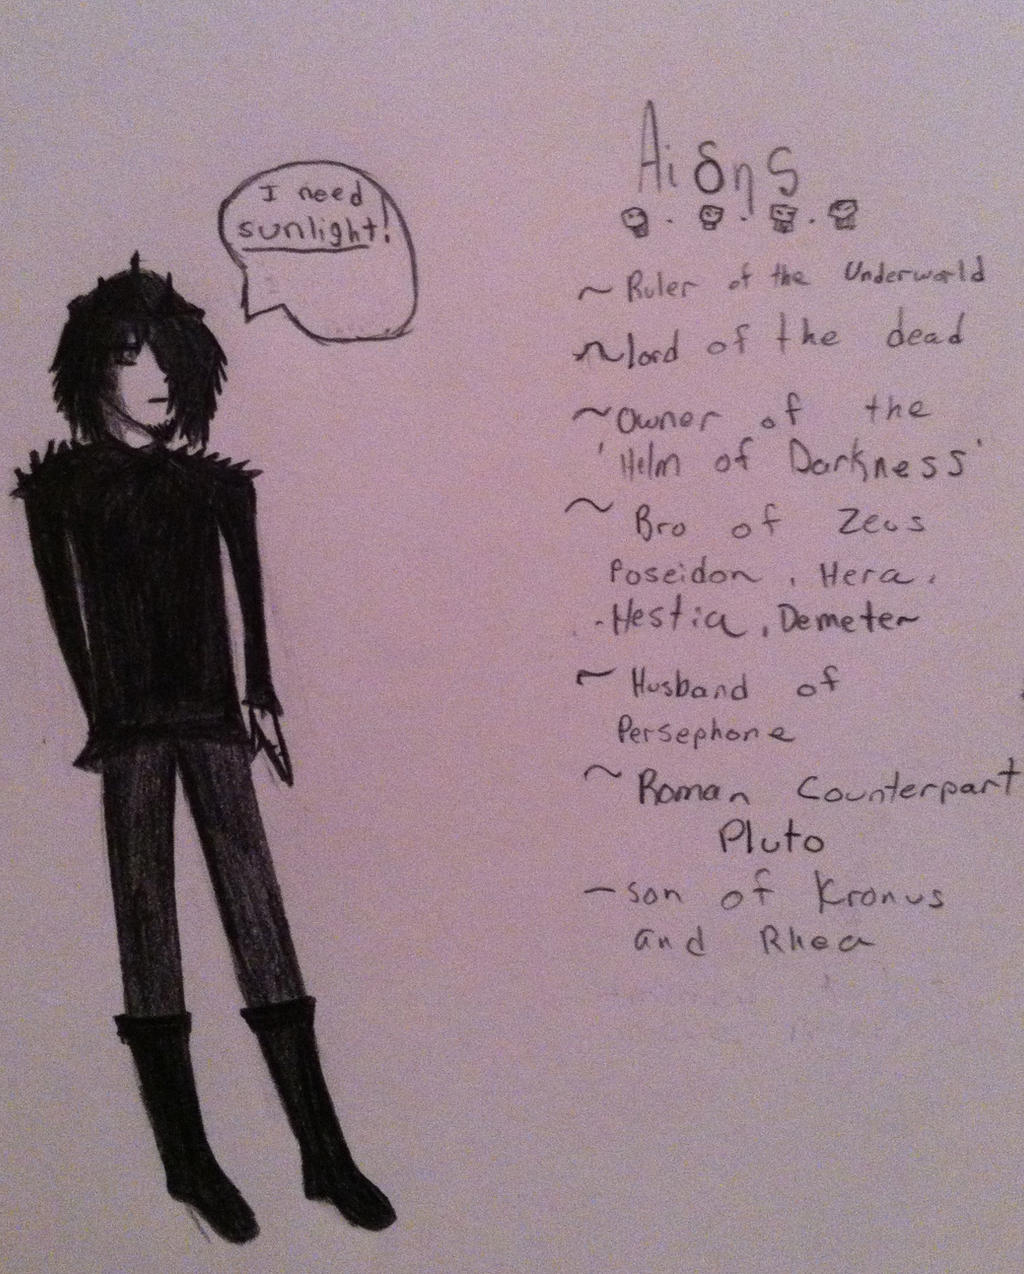 I need
sunlight!
Aiδηs
~ Ruler of the Underworld
~ lord of the dead
~ Owner of the
'Helm of Darkness'
~ Bro of Zeus
Poseidon, Hera,
.Hestia, Demeter
~ Husband of
Persephone
~ Roman Counterpart
Pluto
- son of Kronus
and Rhea